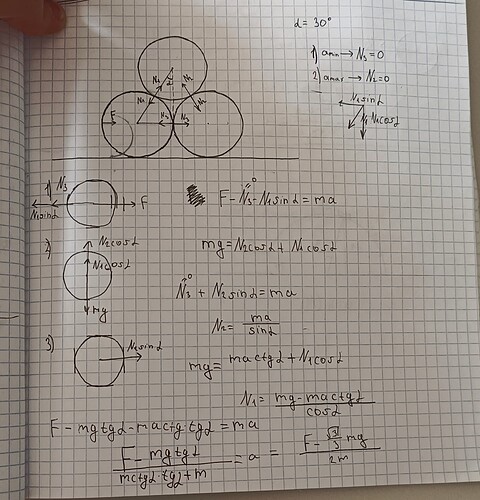 α = 30°
1) amin → N₃ = 0
2) amax → N₂ = 0
N₁sinα
N₁cosα
N₁
α
N₂
N₁
N₂
F
N₃
N₃
1)
N₃
N₁sinα
F
F - N₃ - N₁sinα = ma
0
2)
N₂cosα
N₁cosα
mg
mg = N₂cosα + N₁cosα
0
N₃ + N₂sinα = ma
N₂ = ma / sinα
3)
N₁sinα
mg = mactgα + N₁cosα
N₁ = (mg - mactgα) / cosα
F - mgtgα - mactg·tgα = ma
(F - mgtgα) / (mctgα·tgα + m) = a = (F - (√3/3)mg) / 2m